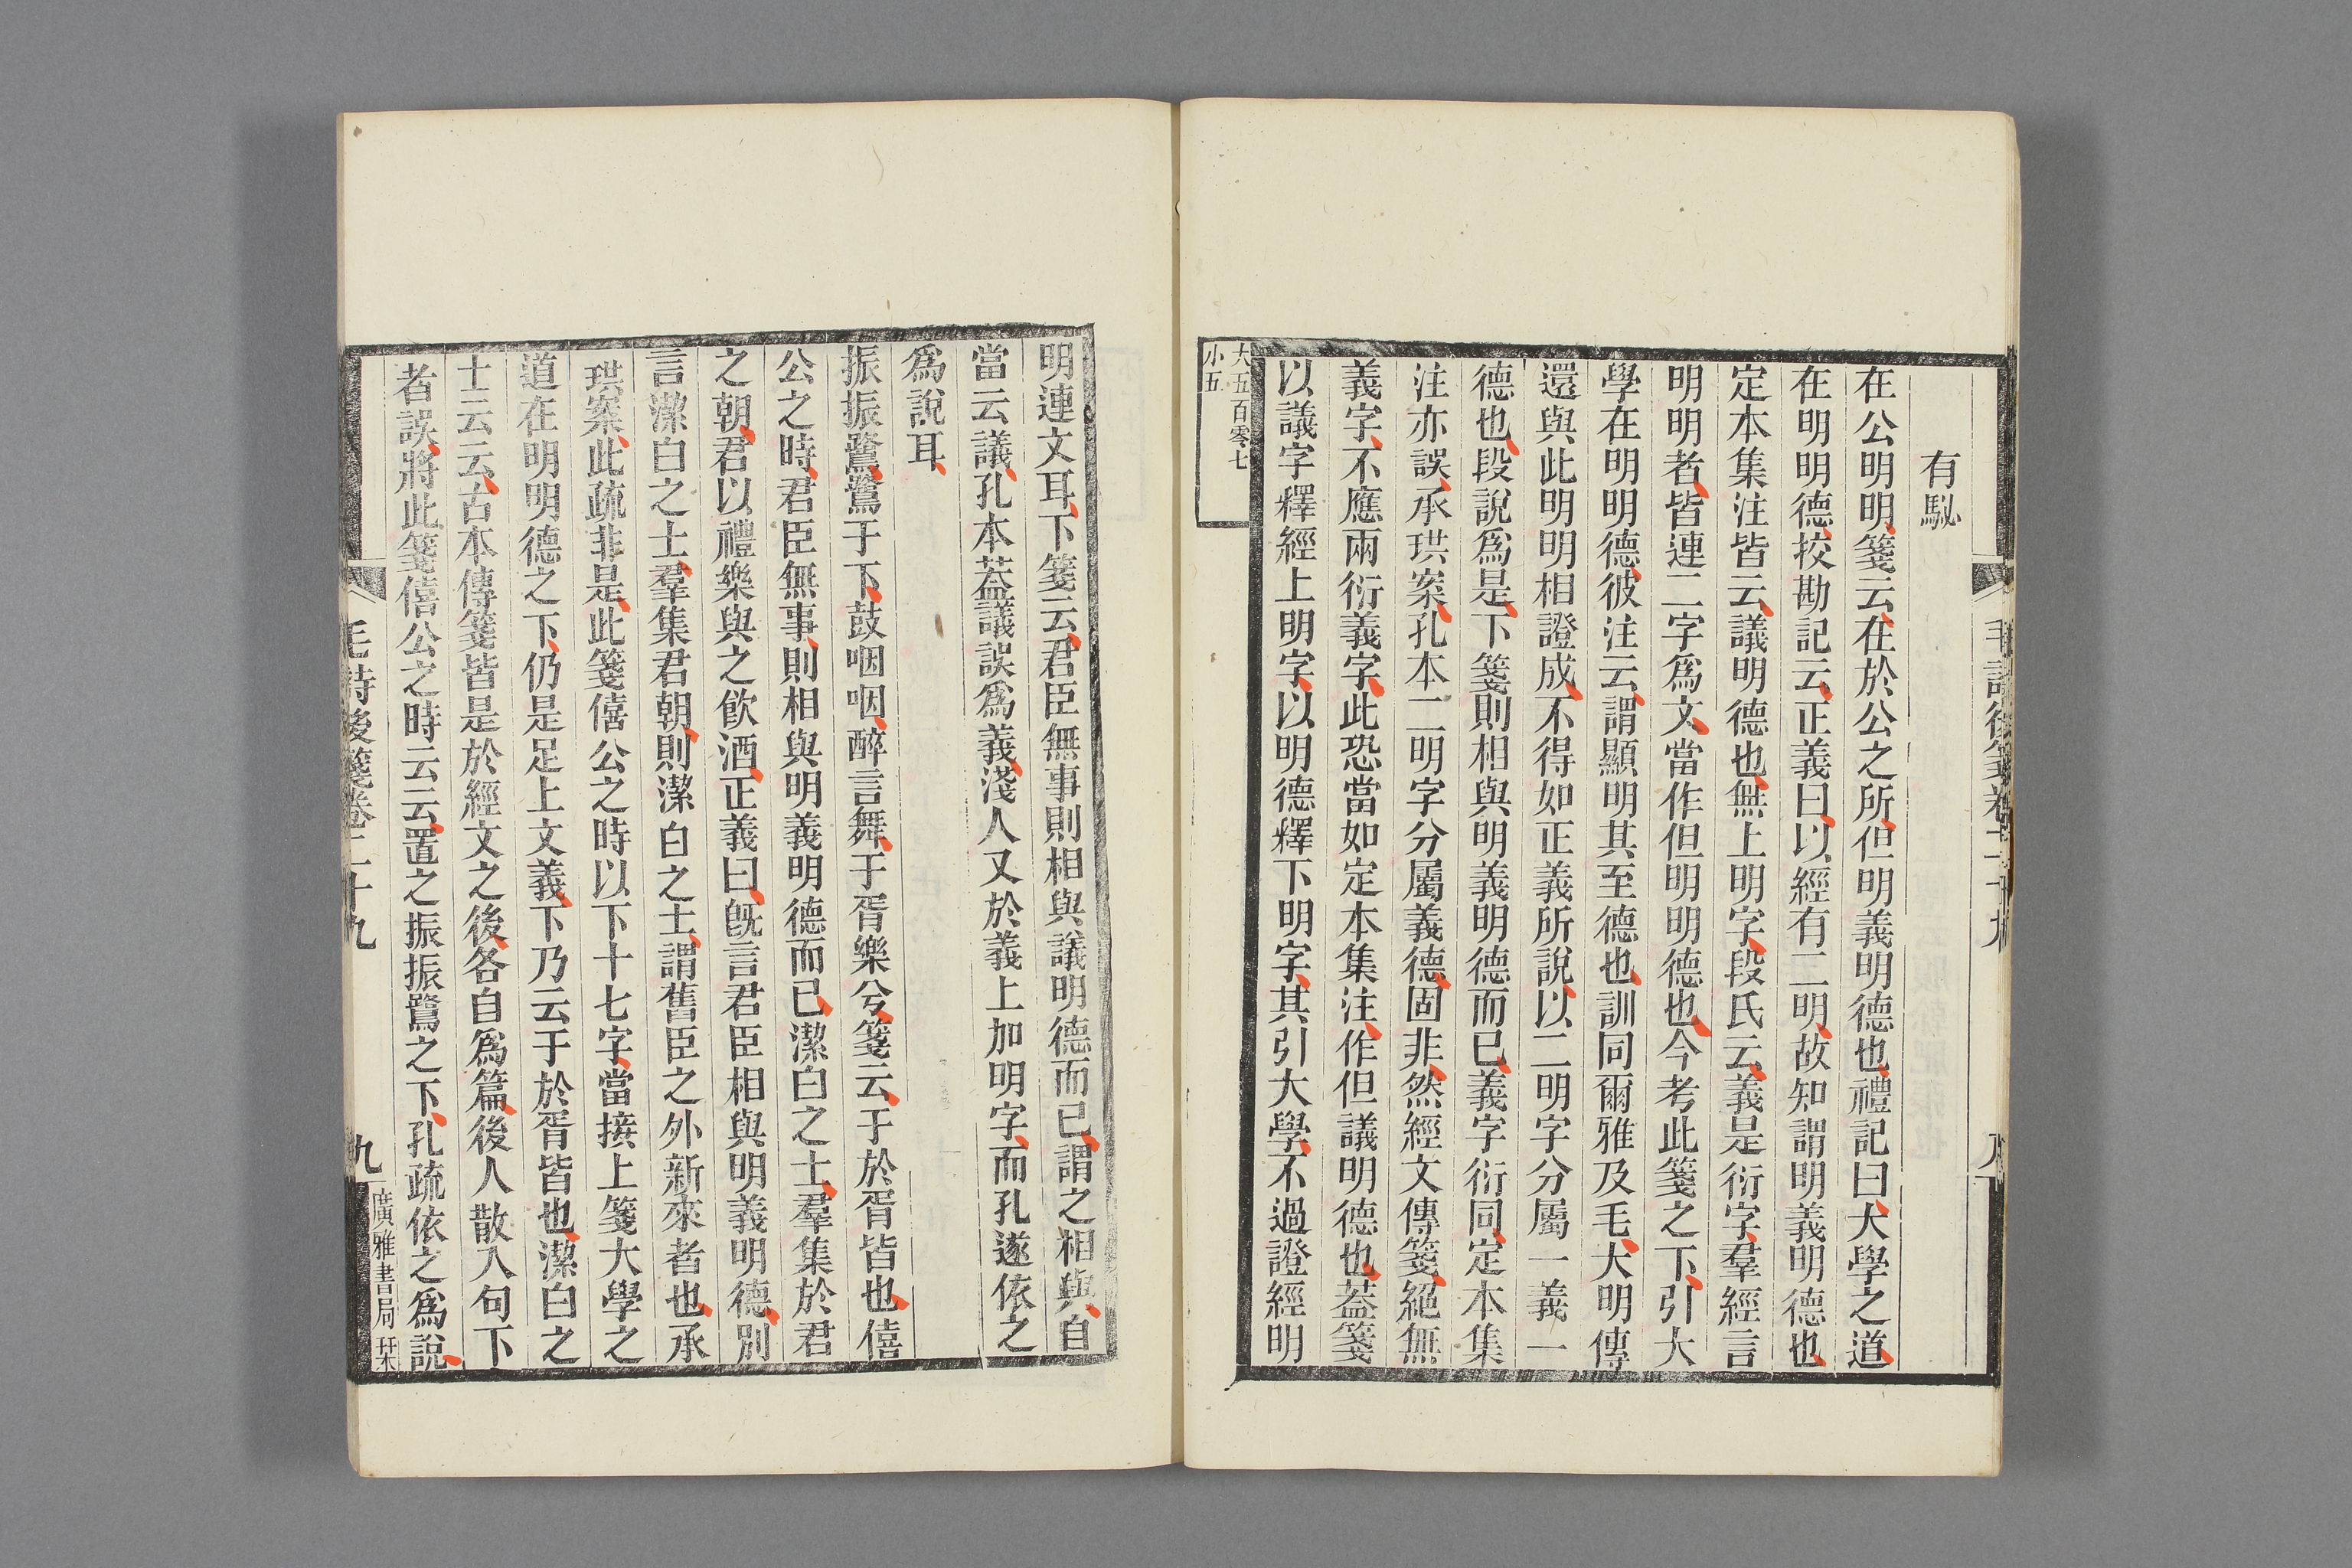 毛詩後箋卷二十九
有駜
在公明明箋云在於公之所但明義明德也禮記曰大學之道
在明明德挍勘記云正義曰以經有二明故知謂明義明德也
定本集注皆云議明德也無上明字段氏云義是衍字羣經言
明明者皆連二字爲文當作但明明德也今考此箋之下引大
學在明明德彼注云謂顯明其至德也訓同爾雅及毛大明傳
還與此明明相證成不得如正義所說以二明字分屬一義一
德也段說爲是下箋則相與明義明德而已義字衍同定本集
注亦誤承珙案孔本二明字分屬義德固非然經文傳箋絕無
義字不應兩衍義字此恐當如定本集注作但議明德也葢箋
以議字釋經上明字以明德釋下明字其引大學不過證經明
大五百零七
小五
明連文耳下箋云君臣無事則相與議明德而已謂之相與自
當云議孔本葢議誤爲義淺人又於義上加明字而孔遂依之
爲說耳
振振鷺鷺于下鼓咽咽醉言舞于胥樂兮箋云于於胥皆也僖
公之時君臣無事則相與明義明德而已潔白之士羣集於君
之朝君以禮樂與之飮酒正義曰旣言君臣相與明義明德別
言潔白之士羣集君朝則潔白之士謂舊臣之外新來者也承
珙案此疏非是此箋僖公之時以下十七字當接上箋大學之
道在明明德之下仍是足上文義下乃云于於胥皆也潔白之
士云云古本傳箋皆是於經文之後各自爲篇後人散入句下
者誤將此箋僖公之時云云置之振振鷺之下孔疏依之爲說
毛詩後箋卷二十九
九
廣雅書局栞